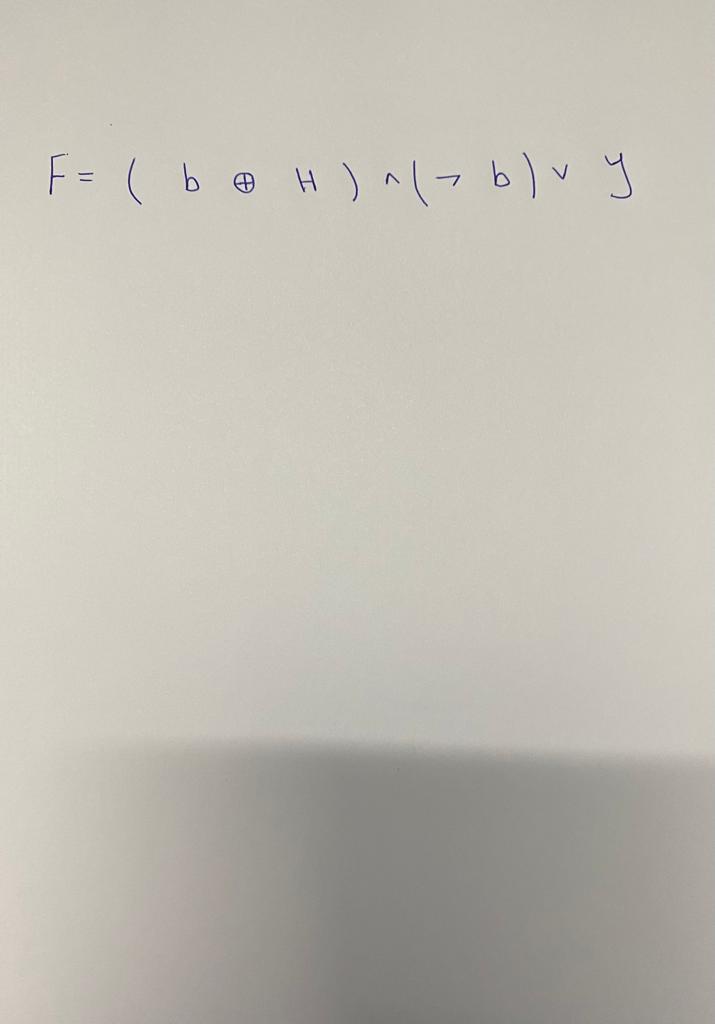 F = ( b ⊕ H ) ∧ (¬ b) ∨ y